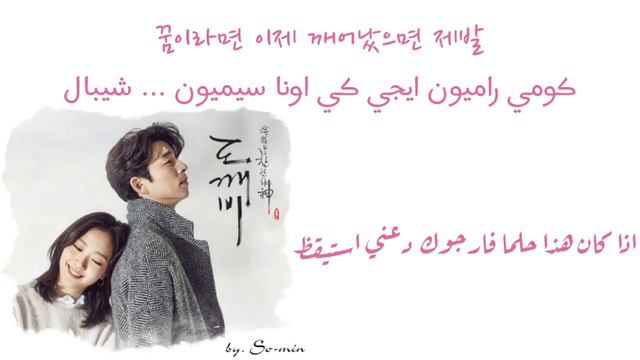 꿈이라면 이제 깨어났으면 제발
كومي راميون ايجي كي اونا سيميون ... شيبال
도깨비
اذا كان هذا حلما فارجوك دعني استيقظ
by. So-min